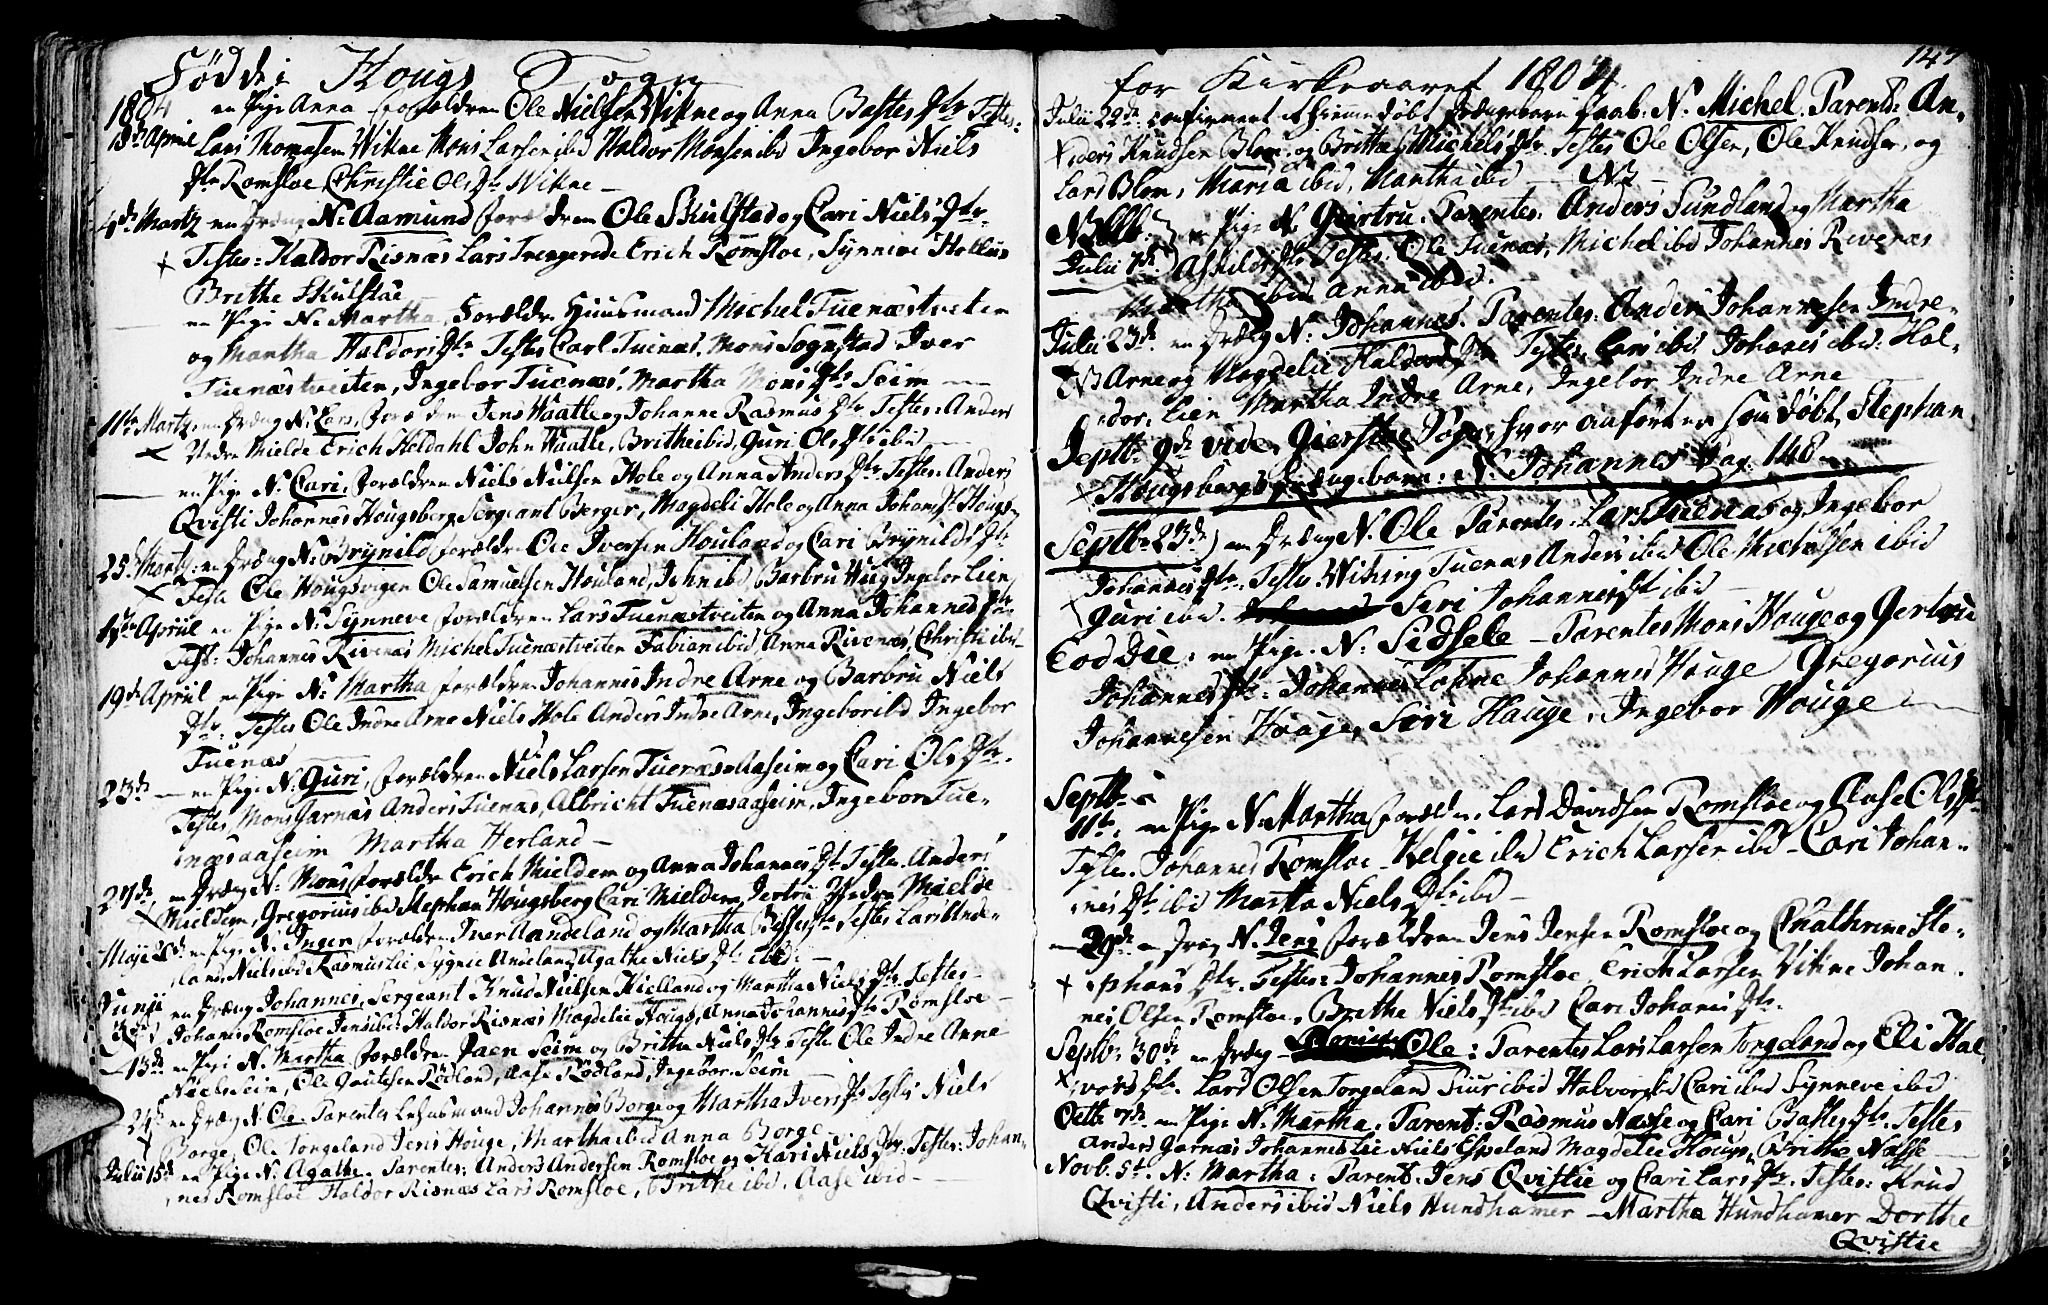 Fødde i Hougs Sogn
1804 en Pige Anna forældren Ole Nielsen Wikne og Anna Bastes Dtr Testes:
15de April Lars Thomasen Wikne Mons Larsen ibid Haldor Monsen ibid Ingebor Niels
Dtr Romsloe, Christie Ols Dtr Wikne —
4de Martz en Dreng N: Aamund forældren Ole Skulstad og Cari Niels Dtr
Testes: Haldor Risnæs Lars Trengerede Erich Romsloe, Synneve
Brithe Skulstad
en Pige N: Martha, Forældre Huusmand Michel Tuenæstveten
og Martha Haldors Dtr Testes Carl Tuenæs. Mons Sognstad Iver
Tuenæstveiten, Ingebor Tuenæs, Martha Mons Dtr Seim
11te Martz en Dreng N: Lars, forældren Jens Waatle og Johanne Rasmus Dtr Testes: Anders
Nedre Mielde Erich Holdahl John Waatle, Brithe ibid, Guri Ols Dtr ibid
en Pige N: Cari, forældren Niels Nielsen Hole og Anna Anders Dtr Testes: Anders
Qvisti Johannes Hougsberg Sergeant Berger, Magdeli Hole og Anna Johans Dtr Hougs
25de Martz: en Dreng N: Brynild forældre Ole Iversen Houland og Cari Brynilds Dtr
Testes Ole Hougsvigen Ole Samuelsen Houland, John ibid Barbru Ingebor Lien
April en Pige N: Synneve forældren Lars Tuenæstveiten og Anna Johannes Dtr
Test: Johannes Rivenæs Michel Tuenæstveiten Fabian ibid, Anna Rivenæs, Christi ibid
19de April en Pige N: Martha forældren Johannes Indre Arne og Barbru Niels
Dtr: Testes Ole Indre Arne Niels Hole Anders Indre Arne, Ingebor ibid Ingebor
Tuenæs
23de — en Pige N: Guri, forældren Niels Larsen Tuenæs Aaseim og Cari Ols Dtr.
Testes Mons Garnæs Anders Tuenæs, Albricht Tuenæsaaseim, Ingebor Tue-
næsaaseim Martha Herland —
27de en Dreng N: Mons forældre Erich Mieldem og Anna Johannes Dtr Testes. Anders
Mieldem, Gregorius ibid Stephan Hougsberg Cari Mieldem Mielde
Maji en Pige N: Inger forældren Iver Aandeland og Martha Dtr Testes Lars Ande-
land, Niels ibid Rasmus Lie, Sygnie Andeland Agathe Niels Dtr ibid —
Junii en Dreng Johannes, Sergeant Knud Nielsen Hielland og Martha Niels Dtr. Testes
Johans Romsloe Jens ibid Haldor Risnæs Magdelie Hougs, Anna Johannes Dtr Romsloe —
13de en Pige N. Martha forældre Paen Seim og Brithe Niels Dtr Teste Ole Indre Arne
Niels Seim, Ole Gautesen Rödland, Aase Rödland, Ingebor Seim
24de en Dreng N: Ole Parentes Johannes Borge og Martha Ivers Dtr Testes Niels
Borge, Ole Tongeland Jens Houge, Martha ibid Anna Borge
Julii 15de en Pige N: Agathe. Parentes: Anders Andersen Romsloe og Kari Niels Dtr: Testes: Johan-
nes Romsloe Haldor Risnæs Lars Romsloe, Brithe ibid, Aase ibid
for Kirkeaaret 1804.
Julii 22de confirmeret et hiemmedøbt Drengebarn N: Michel. Parent: An-
ders Knudsen Blom og Britta Michels Dtr Testes Ole Olsen, Ole Knudsen, og
Lars Blom, Maria ibid, Martha ibid — NB —
en Pige N. Giertru. Parentes: Anders Sundland og Martha
Julii Dtr Testes. Ole Tuenæs, Michel ibid Johannes Rivenæs
Martha ibid Anna ibid.
Julii 23de en Dreng N: Johannes. Parentes. Anders Johannesen Indre-
Arne og Magdelie Haldors Dtr Testes, Lars ibid. Johannes ibid. Hal-
dor Lien Martha Indre Arne, Ingebor Indre Arne
Septbr 9de vide, hvor anført er som døbt, Stephan
Hougsbergs Drengebarn: N: Johannes Pag. 148
Septbr 23de en Dreng N. Ole Parentes. Lars Tuenæs og Ingebor
Johannes Dtr. Testes Wiking Tuenæs Anders ibid Ole Michelsen ibid
Guri ibid. Siri Johannes Dtr ibid —
Eod Die: en Pige. N: Sidsele — Parentes Mons Houge og Gertrue
Johannes Dtr: Johannes Lofne Johannes Houge Gregorius
Johannesen Houge, Siri Hauge, Ingebor Houge —
Septbr
11te en Pige N: Martha forældr. Lars Davidsen Romsloe og Aase Ols Dtr
Testes. Johannes Romsloe — Helgie ibid Erich Larsen ibid — Cari Johan-
nes Dtr ibid Martha Niels Dtr ibid —
29de en Dreng N. Jens forældren Jens Jensen Romsloe og Cathrine Ste-
phans Dtr. Testes: Johannes Romsloe Erich Larsen Vikne Johan-
nes Olsen Romsloe, Brithe Niels Dtr ibid Cari Johannes Dtr.
Septbr 30de en Dreng Ole: Parentes Lars Larsen Tongeland og Eli Hal-
vors Dtr. Lars Olsen Torgeland Siur ibid Halvor ibid Cari ibid Synneve ibid
Octb 7de en Pige N. Martha. Parent: Rasmus Nasse og Cari Bastes Dtr Testes
Anders Garnæs Johannes Lie Niels Espeland Magdelie Hougs, Brithe Nasse
Novb. 5te. N: Martha: Parent. Jens Qvistie og Cari Lars Dtr. Testes: Knud
Qvisti, Anders ibid Niels Hundhamer — Martha Hundhamer Dorthe
Qvistie